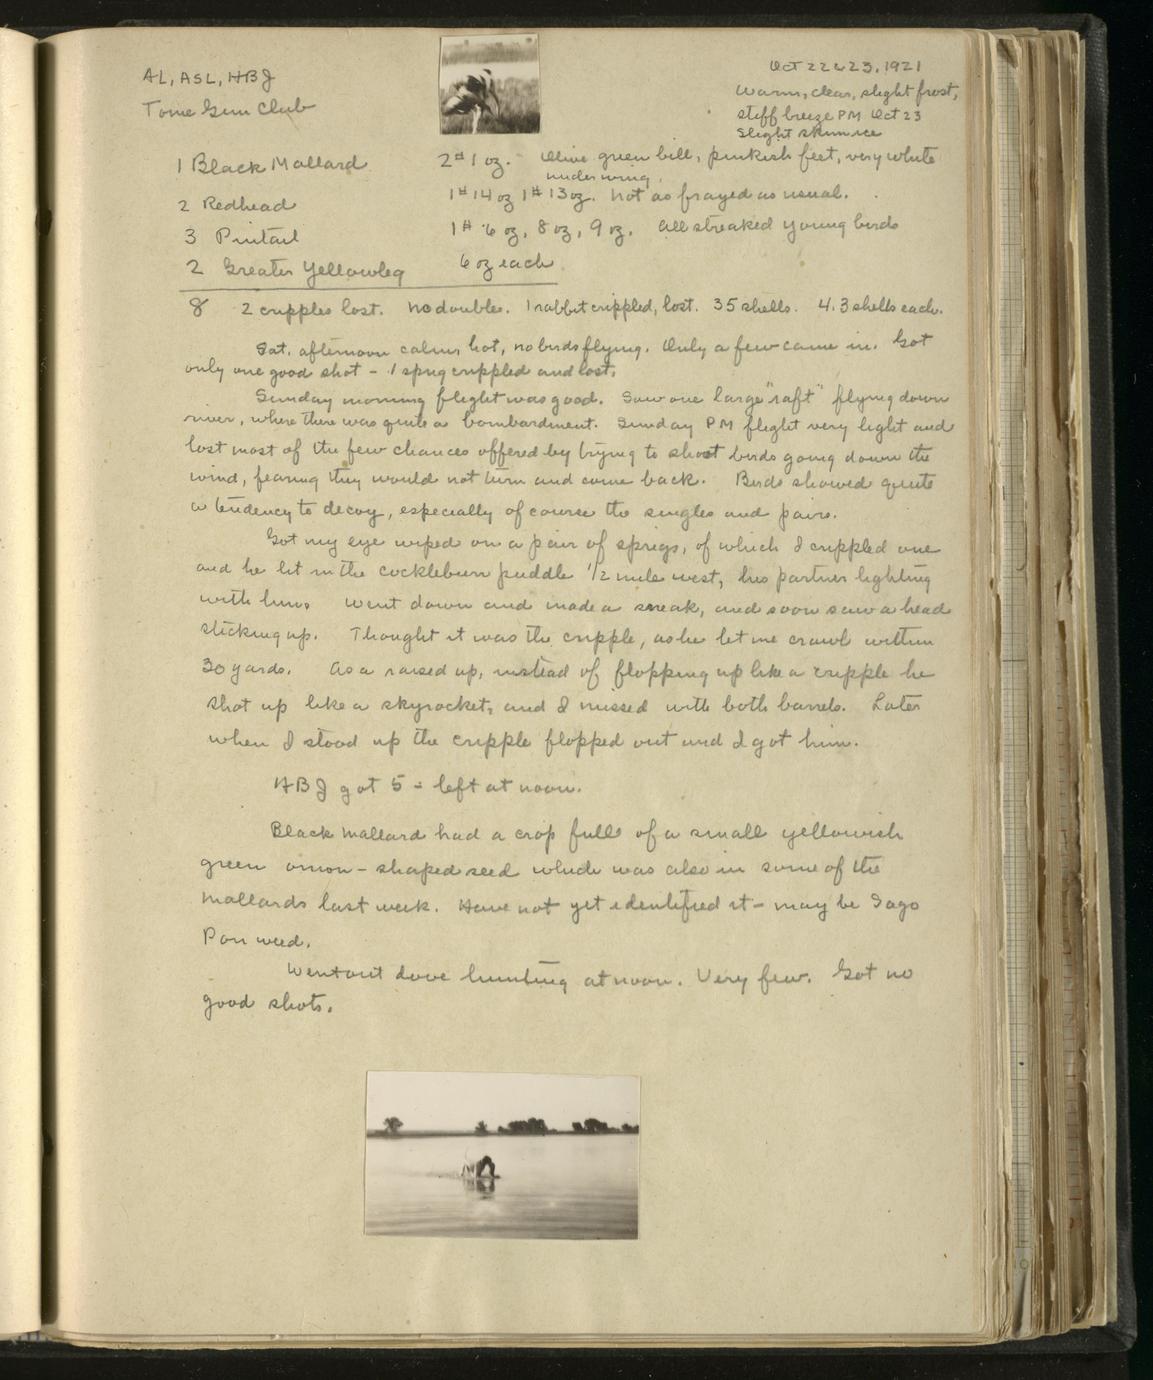 AL, ASL, HBJ
Tome Gun Club
Oct 22 & 23, 1921
Warm, clear, slight frost,
stiff breeze PM Oct 23
Slight skim ice
1 Black Mallard 2# 1 oz. - Olive green bill, pinkish feet, very white
under wing.
2 Redhead 1# 14 oz 1# 13 oz. Not as frayed as usual.
3 Pintail 1# 6 oz, 8 oz, 9 oz. All streaked young birds
2 Greater Yellowleg 6 oz each
8 2 cripples lost. No doubles. 1 rabbit crippled, lost. 35 shells. 4.3 shells each.
Sat. afternoon calm, hot, no birds flying. Only a few came in. Got
only one good shot - 1 sprig crippled and lost.
Sunday morning flight was good. Saw one large "raft" flying down
river, where there was quite a bombardment. Sunday PM flight very light and
lost most of the few chances offered by trying to shoot birds going down the
wind, fearing they would not turn and come back. Birds showed quite
a tendency to decoy, especially of course the singles and pairs.
Got my eye wiped on a pair of sprigs, of which I crippled one
and he lit in the cockleburr puddle 1/2 mile west, his partner lighting
with him. Went down and made a sneak, and soon saw a head
sticking up. Thought it was the cripple, as he let me crawl within
30 yards. As a raised up, instead of flopping up like a cripple he
shot up like a skyrocket, and I missed with both barrels. Later
when I stood up the cripple flopped out and I got him.
HBJ got 5 - left at noon.
Black Mallard had a crop full of a small yellowish
green onion-shaped seed which was also in some of the
Mallards last week. Have not yet identified it - may be Sago
Pon weed.
Went out dove hunting at noon. Very few. Got no
good shots.